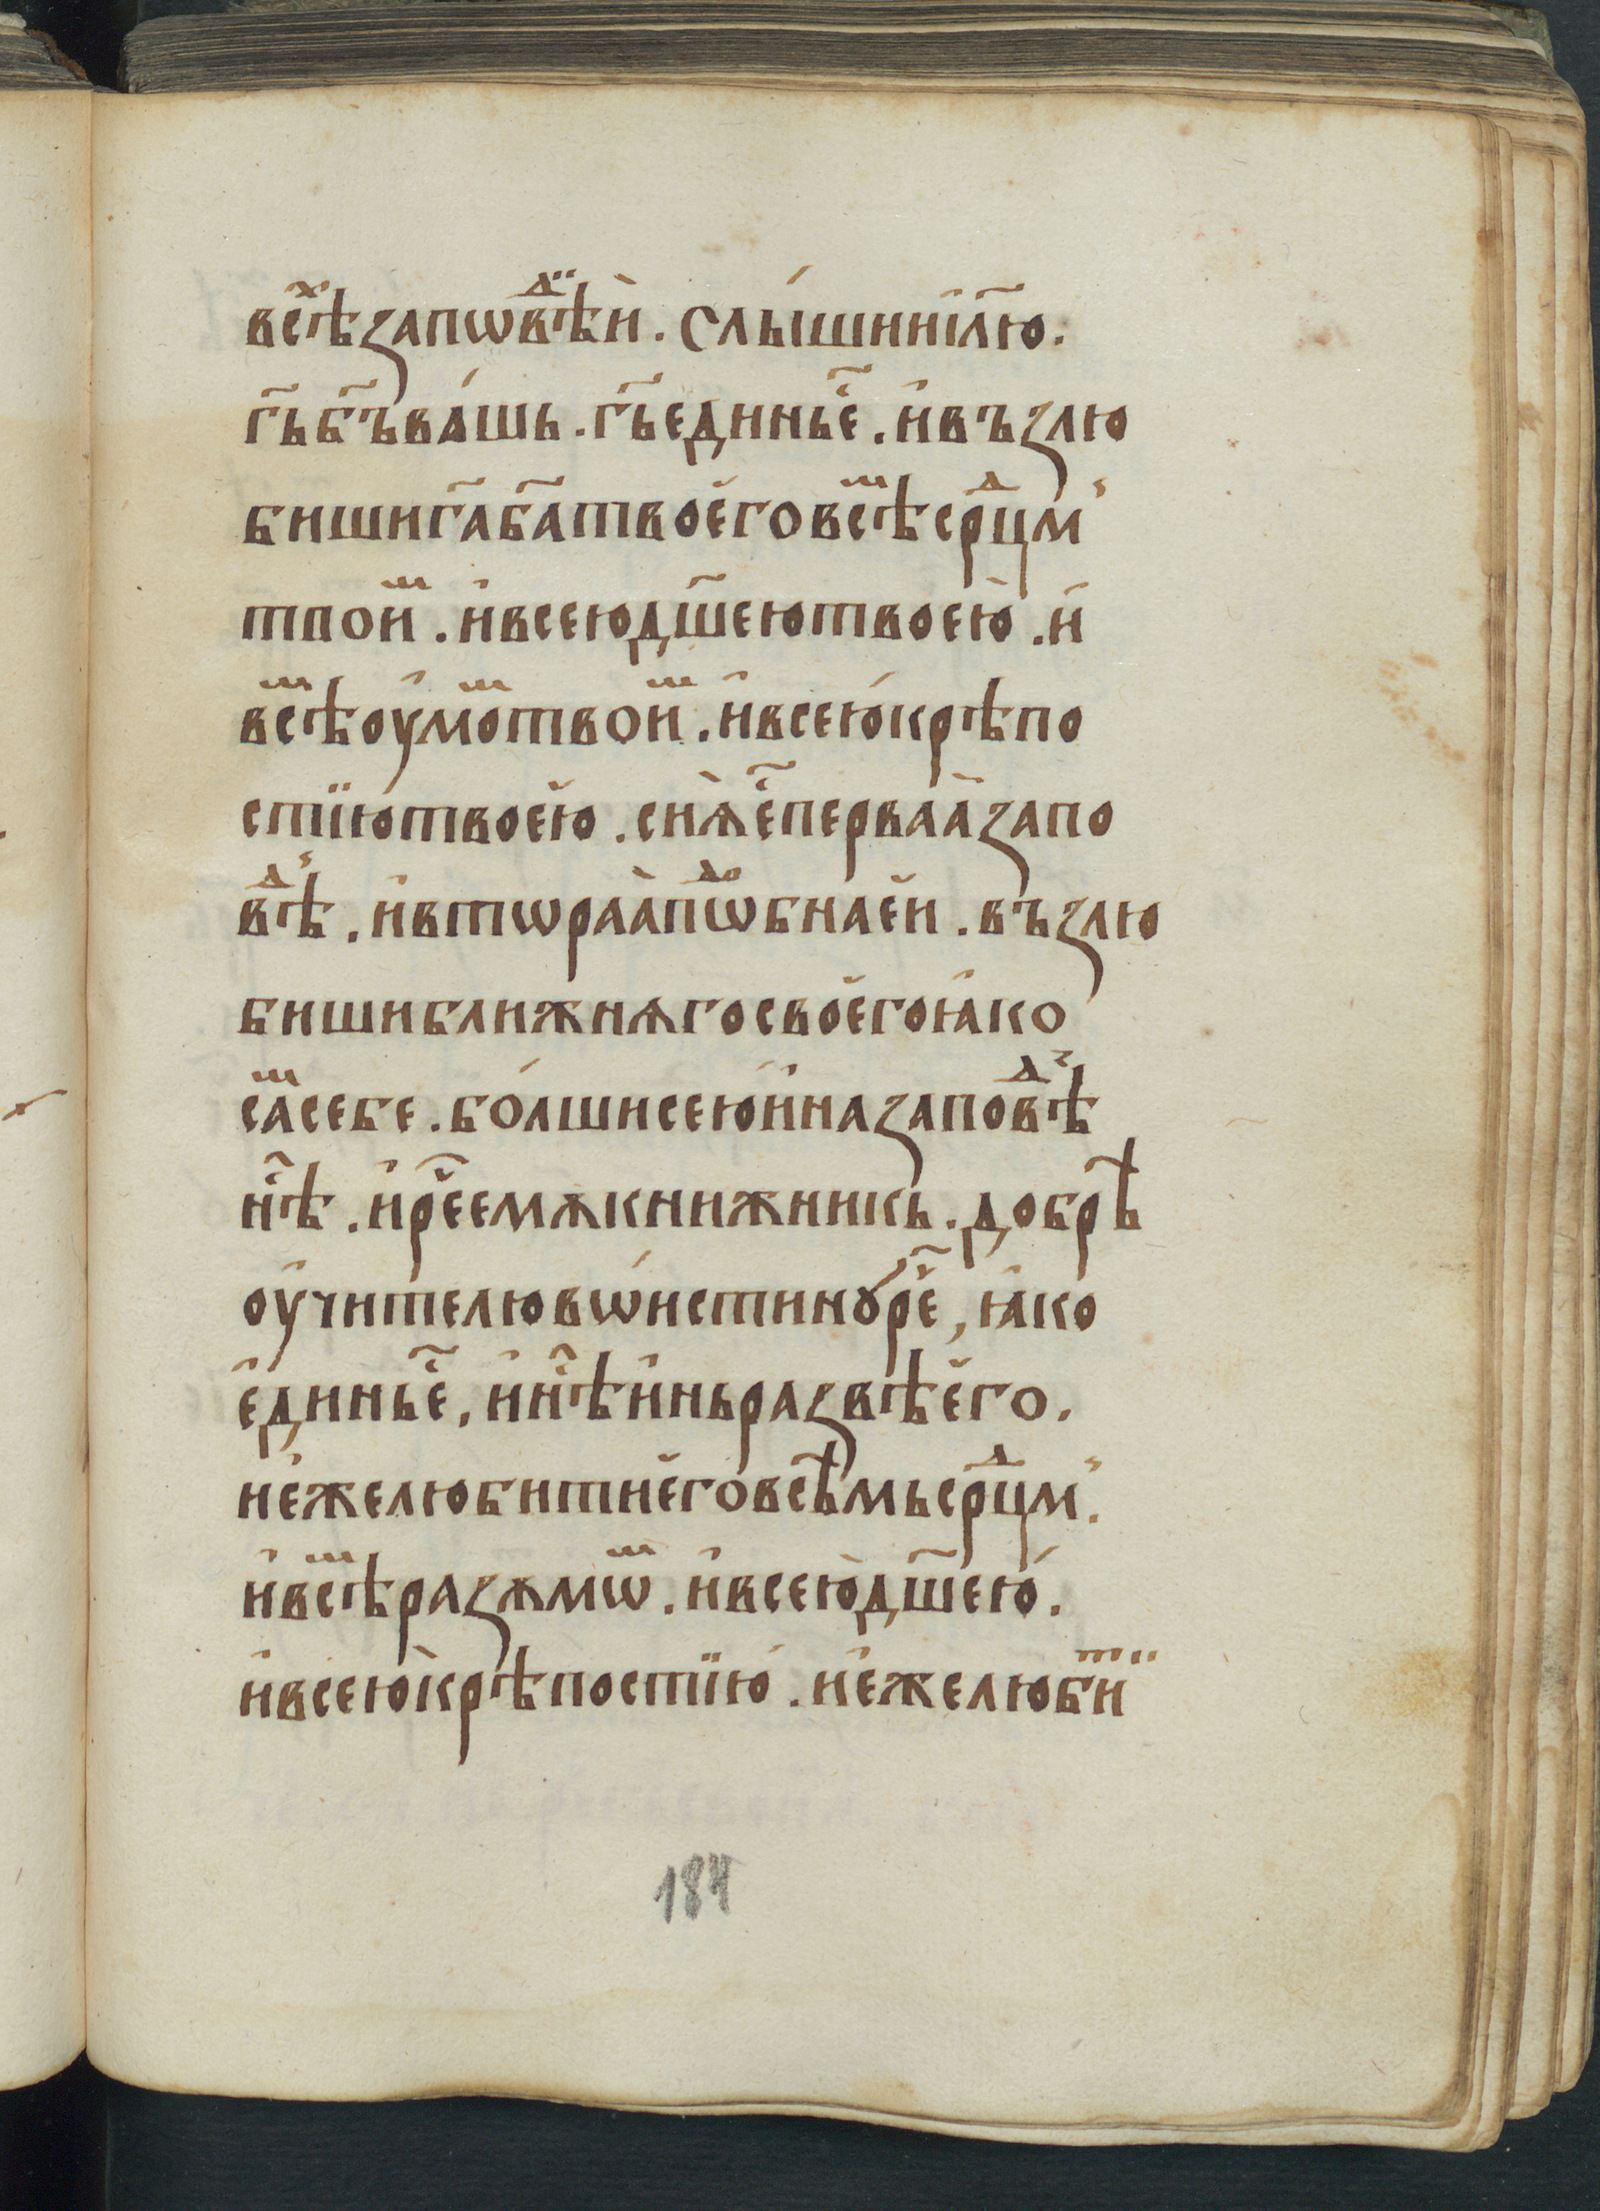 всѣⷯ҇запѡвѣⷣ҇й . Слы́шиі҆л҃ю .
гь҃бъ҃ва́шь . гь҃единье҃ . и҆възлю
бишига҃ба҃твоего̀всѣⷨсрⷣцм҆
твоиⷨ . и҆всеюдш҃еютвоею̀ . и҆
всѣⷨоу҆моⷨтвоиⷨ . и҆всею́крѣпо
стїю́твоею̀ . сиѧ̀е҃перваа̀запо
вѣⷣ . и҆втѡраа̀пѡⷣбнаей . възлю
бишиближнѧгосвоегоꙗ҆ко
саⷨсебе . бо́лшисеюи҆наꙁаповѣⷣ
нѣ҃ . и҆ре҃емѫкнижникь . добрѣ
оу҆чителювѡ́истинꙋре҃ , ꙗ҆ко
е҆динье҃ , инѣ҃и҆ньразвѣего .
не҆желюбитиеговсѣмьсрⷣцм҆ .
и҆всѣⷨразѫмѡⷨ . и҆всею̀дш҃ею́ .
и҆всею̀крѣпостїю́ . не҆желюбиⷮ
184